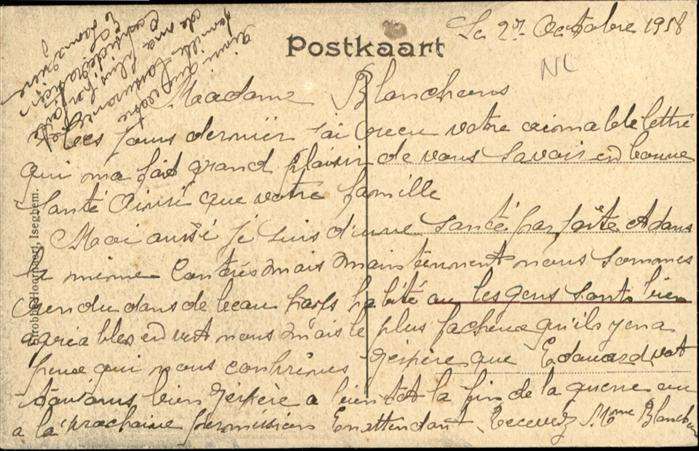 Le 27 Octobre 1918
Postkaart
NL
Maadame Blanchens
Ces jours dernièr j'ai recu votre aimable lettre
qui ma fait grand plaisir de vous savoir en bonne
santé ainsi que votre famille
Moi aussi je suis d'une santé parfaite et dans
la mime mais maintenent nous sommes
rendu dans de beau pays habité ou les gens sont bien
agréables envert nous mais le plus facheux qu'ils yena
peux qui nous j'éspére que Edouard vat
toujours bien j'éspére a bientot la fin de la guerre ou
a la prochaine permission En attendant Recevez Mme Blanchens
ainsi que votre
famille
de ma
plus
Strobbe-Hoornaert, Iseghem.